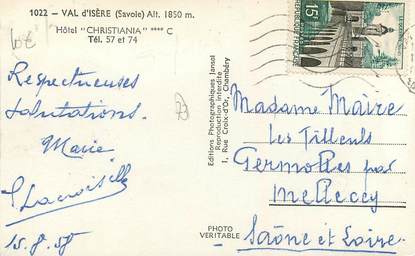 1022 - VAL d'ISÈRE (Savoie) Alt. 1850 m.
Hôtel "CHRISTIANIA" **** C
Tél. 57 et 74
Respectueuses
salutations.
Marie
S. Lacroix
15.8.58
73
Editions Photographiques Jansol
Reproduction interdite
1, Rue Croix-d'Or, Chambéry
PHOTO
VERITABLE
15F
Madame Maire
Les Tilleuls
Germolles par
Mellecey
Saône et Loire